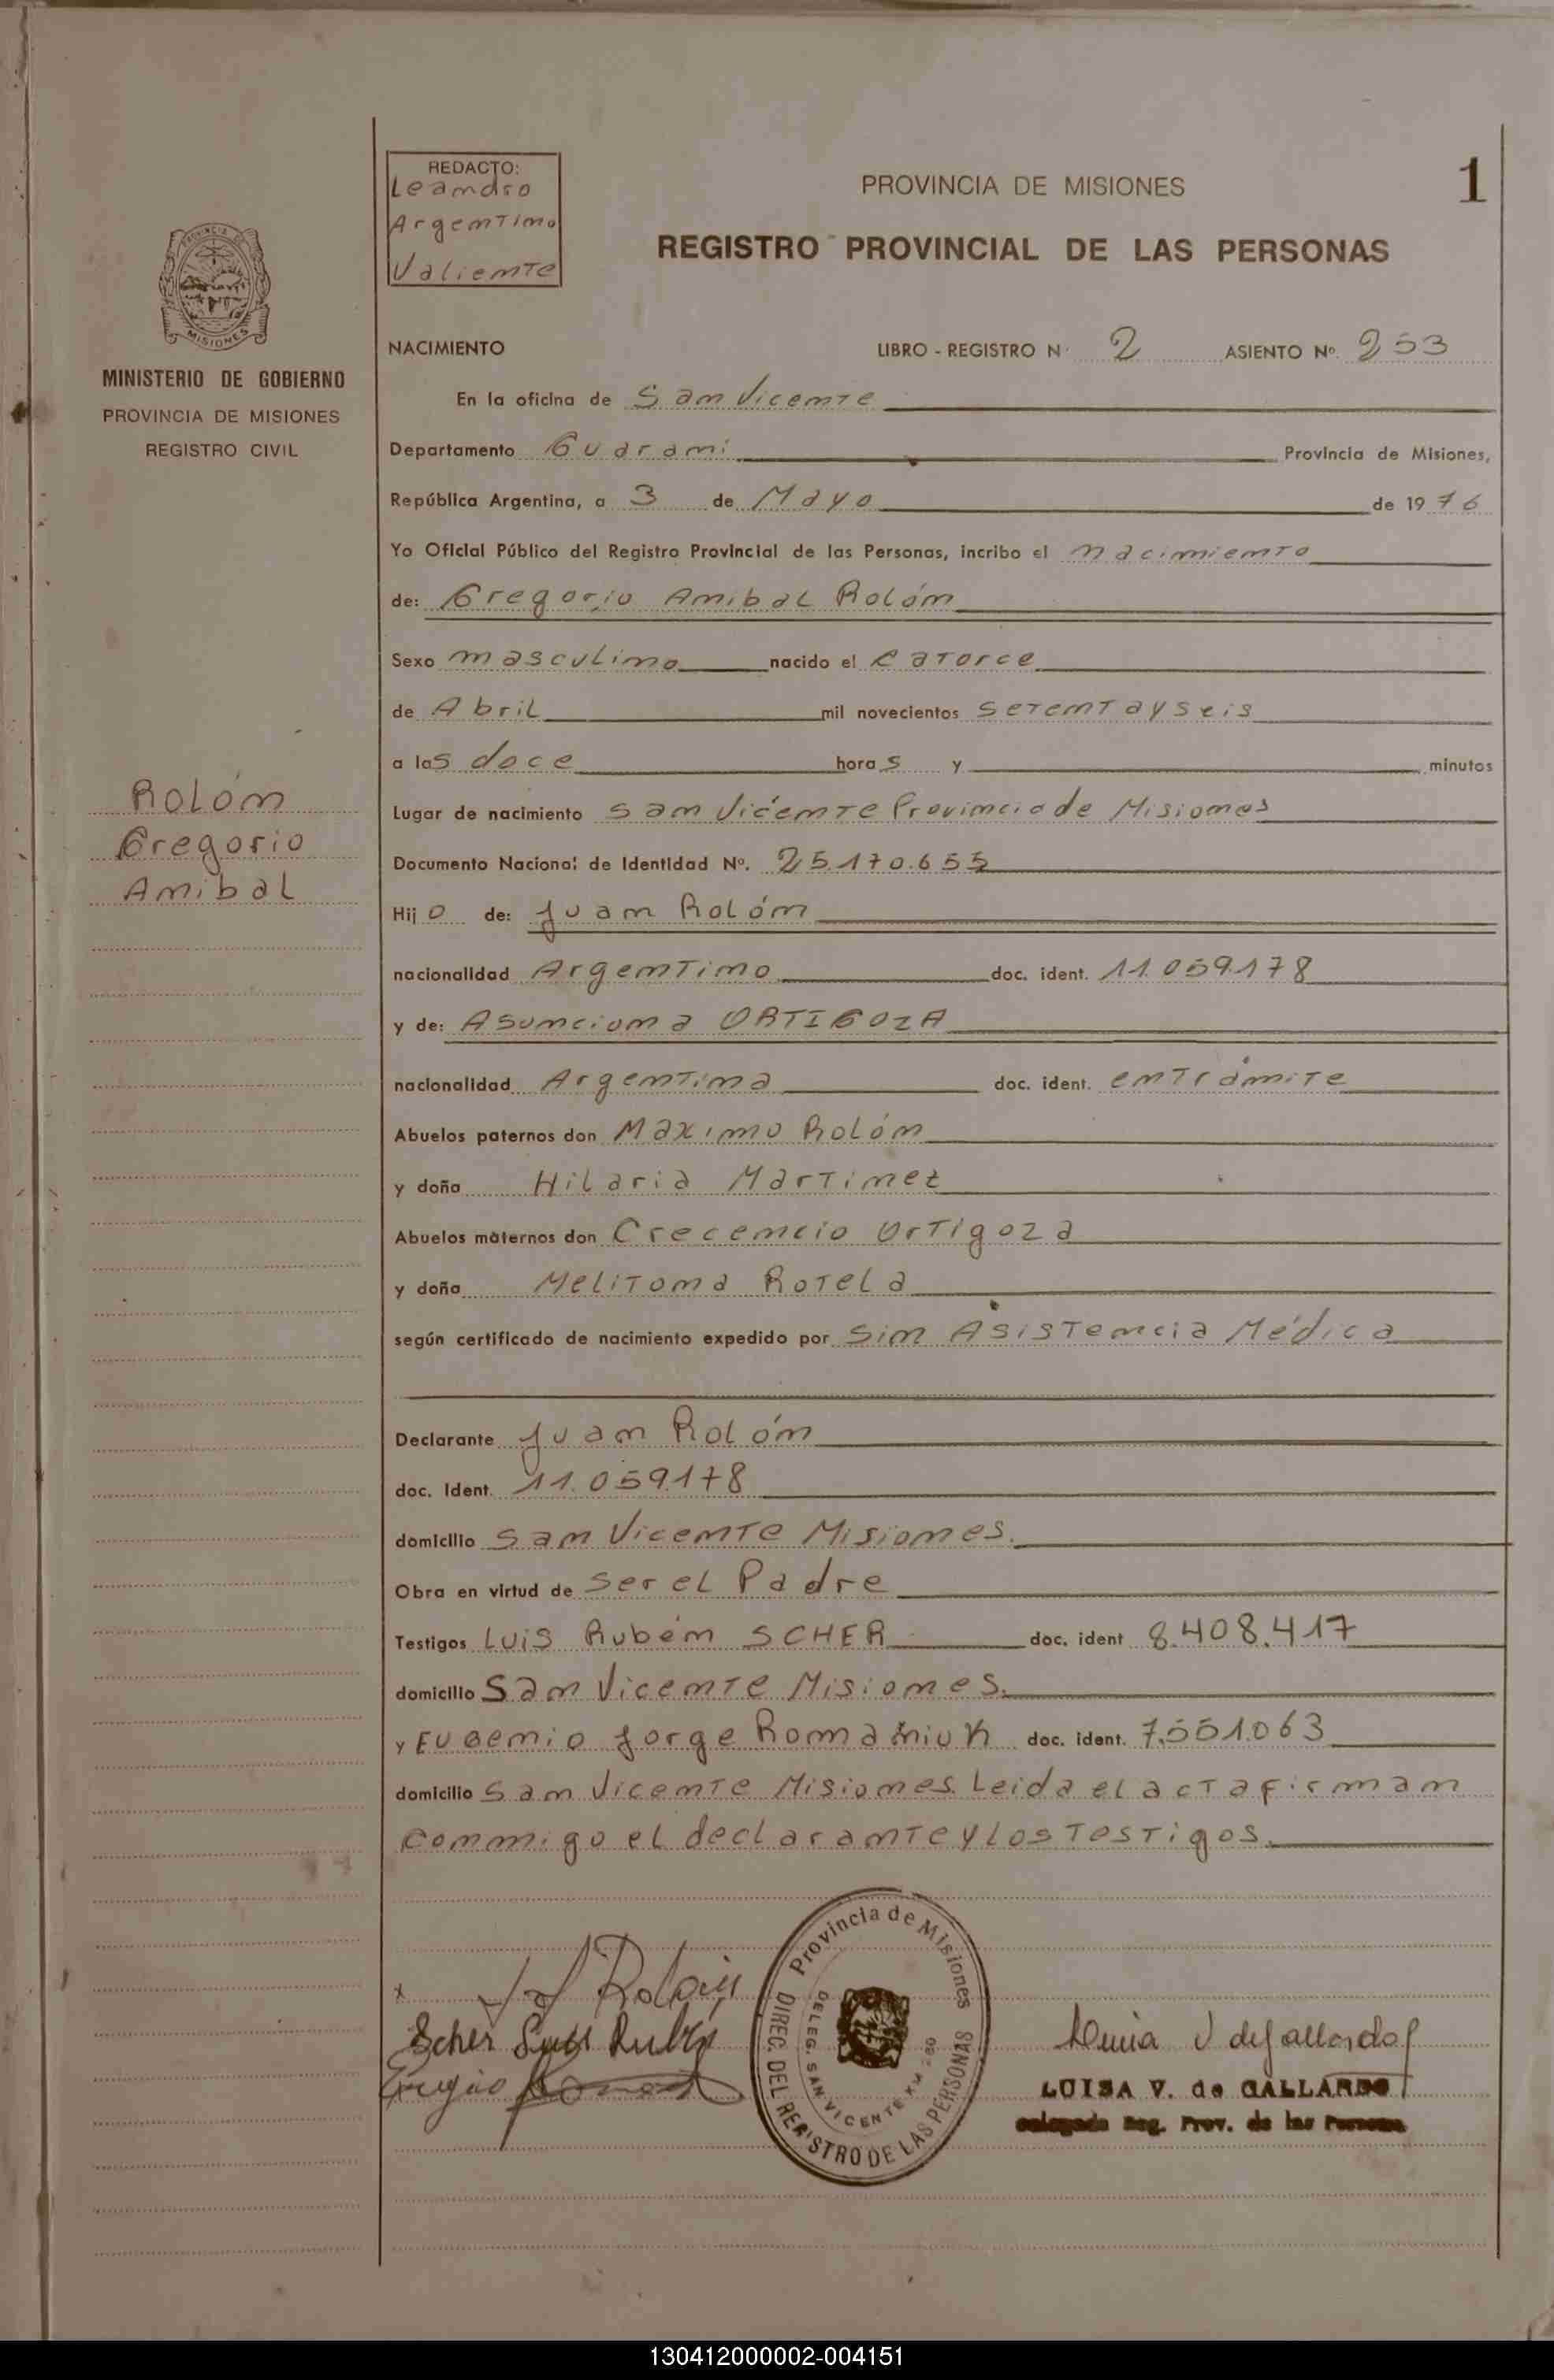 REDACTO:
Leandro
Argentino
Valiente
PROVINCIA DE MISIONES
1
REGISTRO PROVINCIAL DE LAS PERSONAS
PROVINCIA DE
MISIONES
MINISTERIO DE GOBIERNO
PROVINCIA DE MISIONES
REGISTRO CIVIL
NACIMIENTO LIBRO - REGISTRO N° 2 ASIENTO Nº. 253
En la oficina de San Vicente
Departamento Guaraní Provincia de Misiones,
República Argentina, a 3 de Mayo de 1976
Yo Oficial Público del Registro Provincial de las Personas, incribo el nacimiento
de: Gregorio Anibal Rolón
Sexo masculino nacido el catorce
de Abril mil novecientos setentayseis
a las doce horas y minutos
Rolón
Gregorio
Anibal
Lugar de nacimiento San Vicente Provincia de Misiones
Documento Nacional de Identidad Nº. 25.170.655
Hijo de: Juan Rolón
nacionalidad Argentino doc. ident. 11.059.178
y de: Asunciona ORTIGOZA
nacionalidad Argentina doc. ident. en trámite
Abuelos paternos don Maximo Rolón
y doña Hilaria Martinez
Abuelos maternos don Crecencio Ortigoza
y doña Melitona Rotela
según certificado de nacimiento expedido por Sin Asistencia Médica
Declarante Juan Rolón
doc. Ident. 11.059.178
domicilio San Vicente Misiones.
Obra en virtud de ser el Padre
Testigos Luis Rubén SCHER doc. ident 8.408.417
domicilio San Vicente Misiones.
y Eugenio Jorge Romaniuk doc. ident. 7.551.063
domicilio San Vicente Misiones. Leida el acta firman
conmigo el declarante y los testigos.
x J Rolón
Scher Luis Rubén
Provincia de Misiones
DIREC. DEL REGISTRO DE LAS PERSONAS
DELEG. SAN VICENTE
LUISA V. de GALLARDO
Delegada Reg. Prov. de las Personas
130412000002-004151